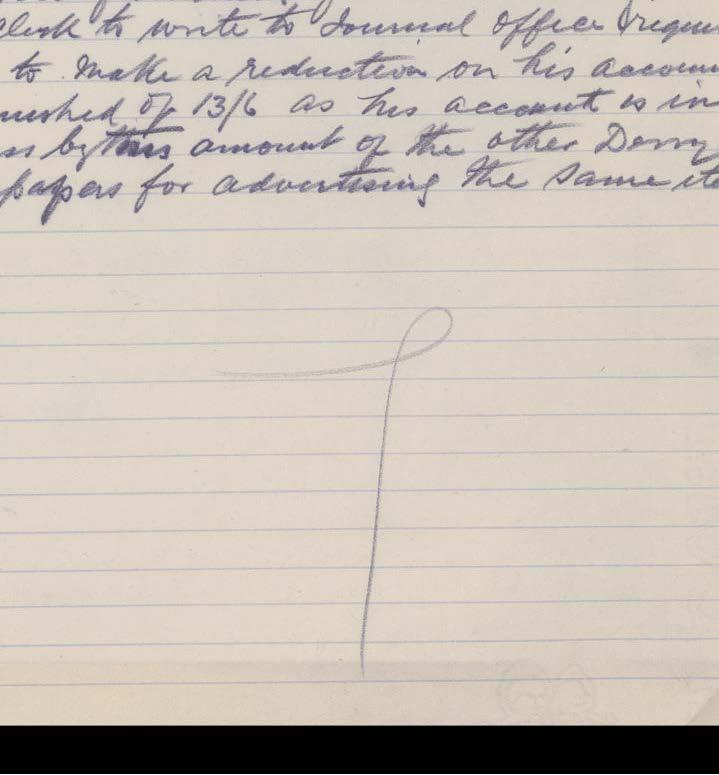 clerk to write to Journal office reque
to make a reduction on his accoun
nished of 13/6 as his account is in
ss by this amount of the other Derry
papers for advertising the same ite